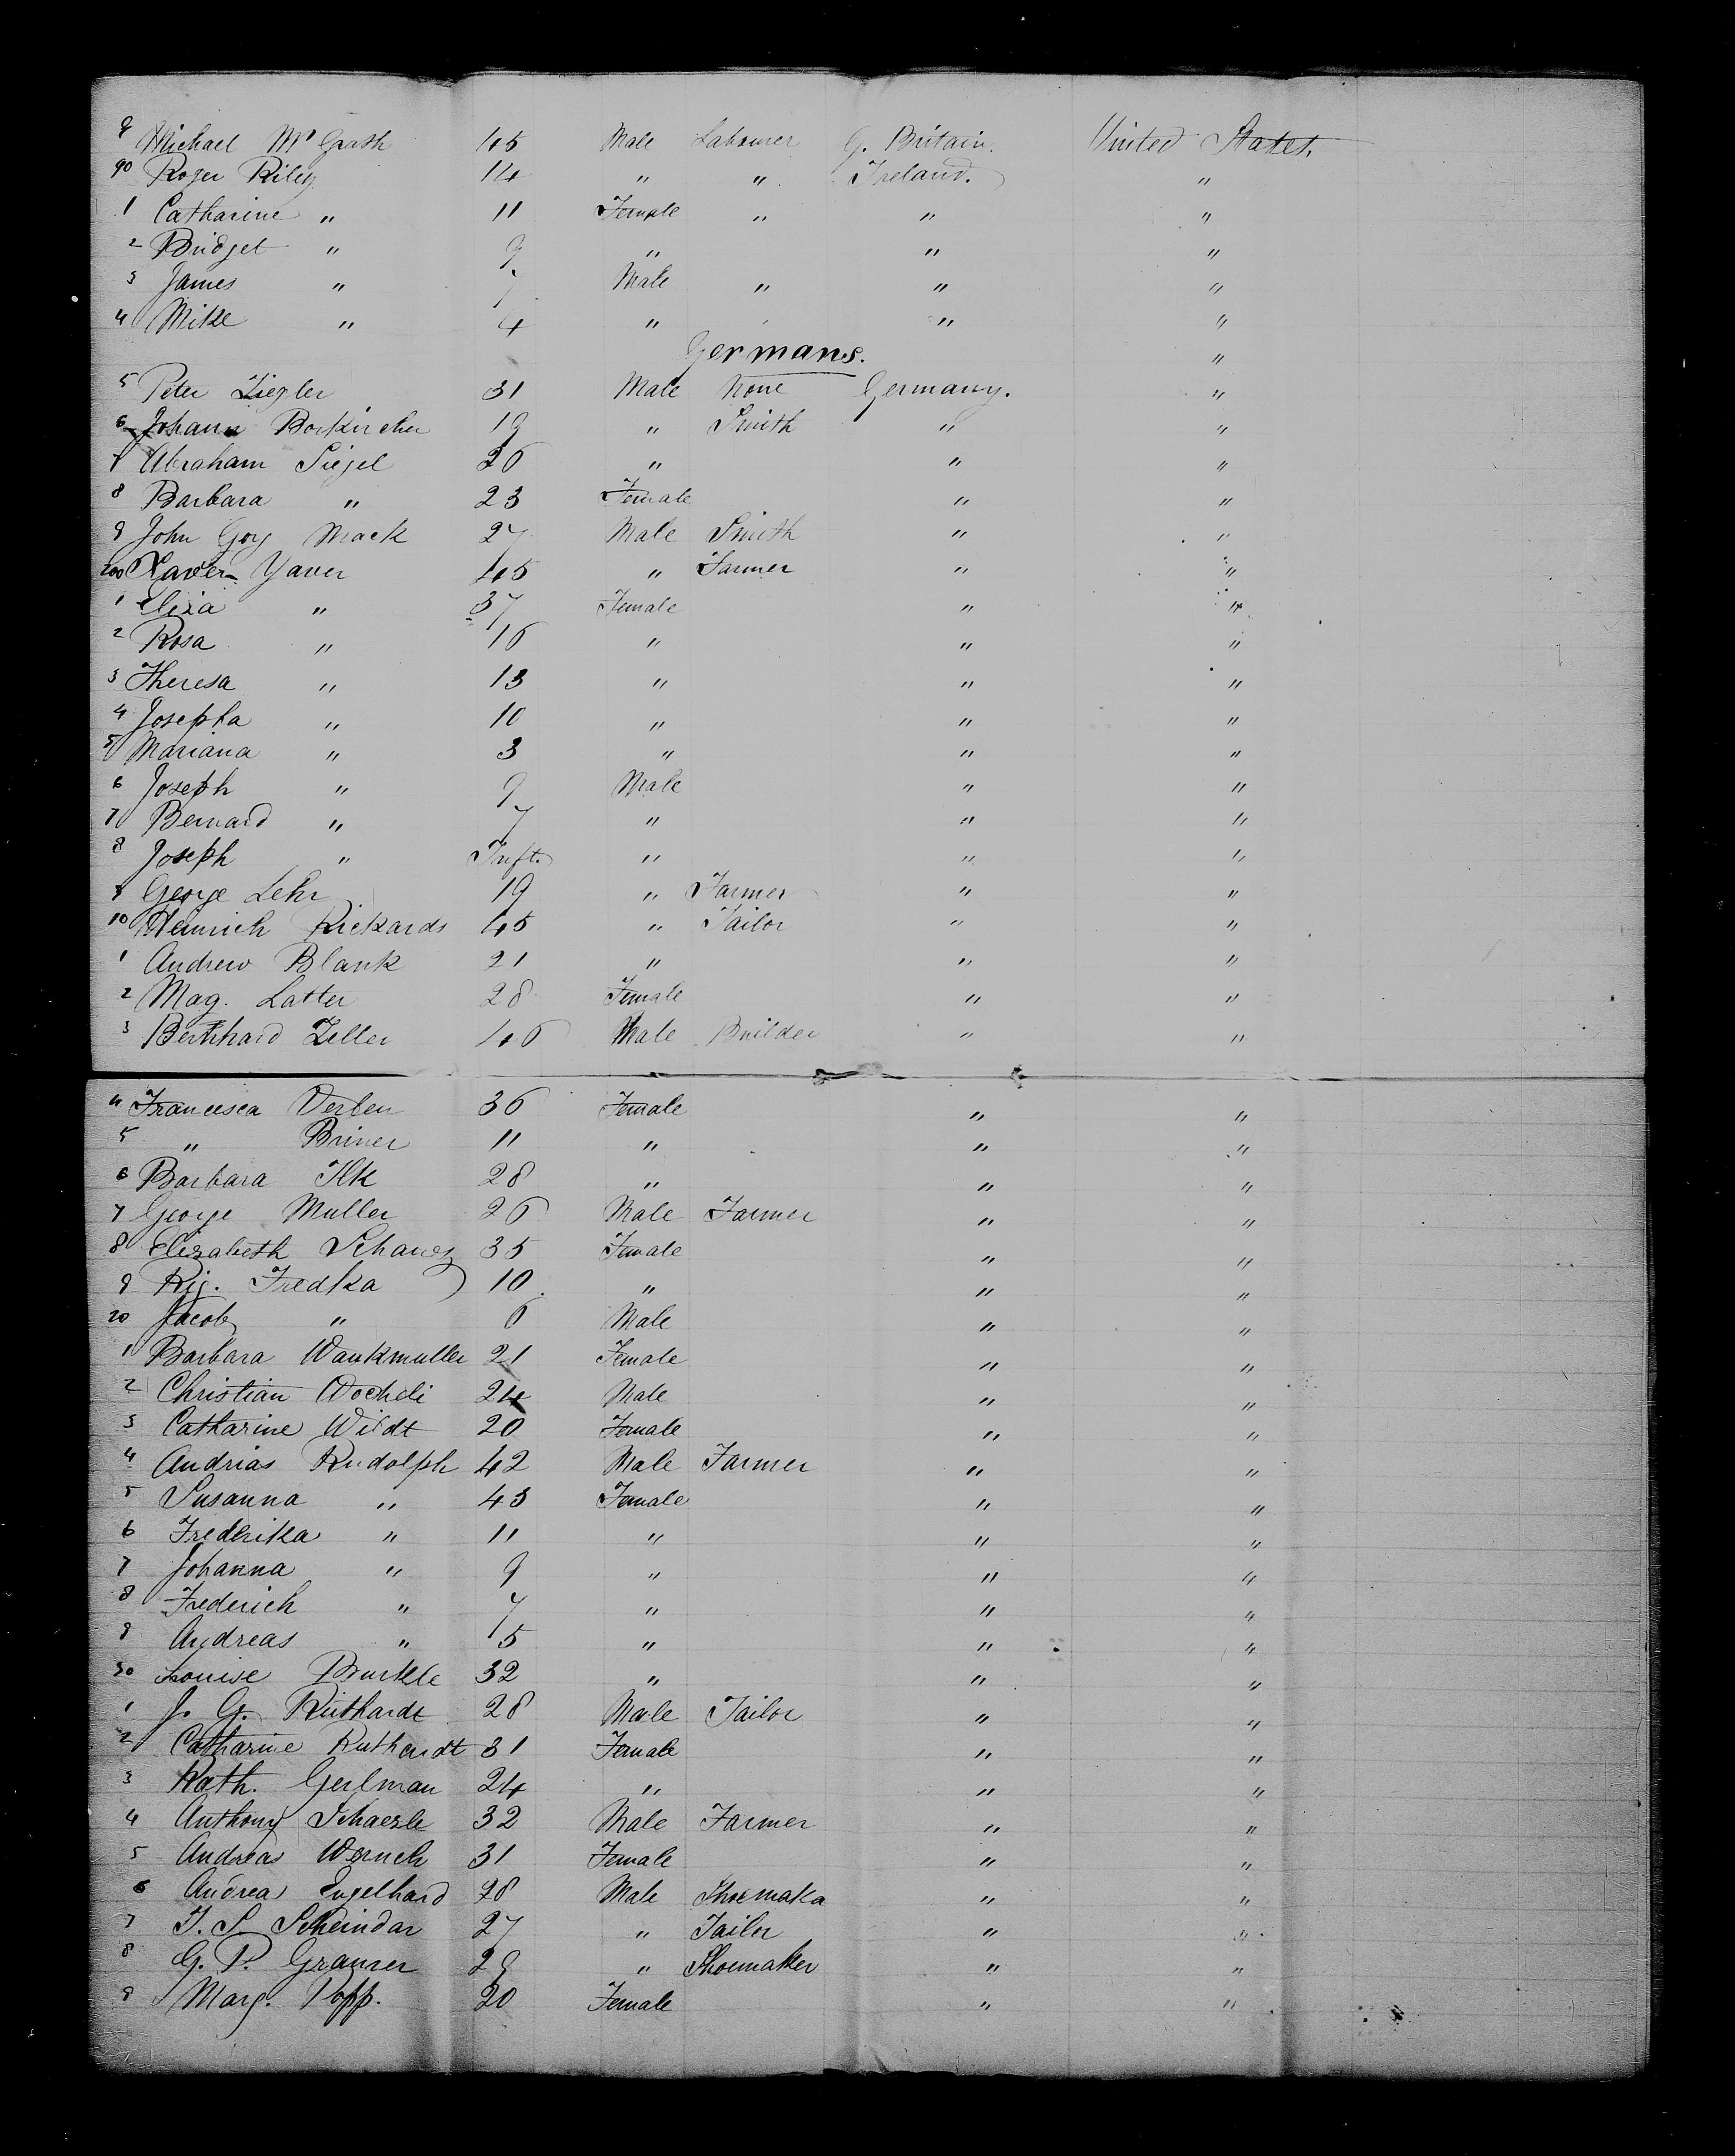 9 Michael McGrath 45 Male Labourer G. Britain. United States.
90 Roger Riley 14 " " Ireland. "
1 Catharine " 11 Female " " "
2 Bridget " 9 " " "
3 James " 7 Male " " "
4 Mike " 4 " " "
Germans. "
5 Peter Ziegler 31 Male None Germany. "
6 Johann Borkircher 19 " Smith " "
7 Abraham Siegel 26 " " "
8 Barbara " 23 Female " "
9 John Gorg Mack 27 Male Smith " "
200 Xaver Yaver 45 " Farmer " "
1 Eliza " 37 Female " "
2 Rosa " 16 " " "
3 Theresa " 13 " " "
4 Josepha " 10 " " "
5 Mariana " 3 " " "
6 Joseph " 9 Male " "
7 Bernard " 7 " " "
8 Joseph " Inft. " " "
9 George Lehr 19 " Farmer " "
10 Heinrich Rickards 45 " Tailor " "
1 Andrew Blank 21 " " "
2 Mag. Latter 28 Female " "
3 Bernhard Zeller 46 Male Builder " "
4 Francesca Verlen 36 Female " "
5 " Briner 11 " " "
6 Barbara Ilk 28 " " "
7 George Muller 26 Male Farmer " "
8 Elizabeth Schanz 35 Female " "
9 Rig. Fredka 10 " " "
20 Jacob " 6 Male " "
1 Barbara Wankmuller 21 Female " "
2 Christian Wocheli 24 Male " "
3 Catharine Wildt 20 Female " "
4 Andrias Rudolph 42 Male Farmer " "
5 Susanna " 43 Female " "
6 Frederika " 11 " " "
7 Johanna " 9 " " "
8 Frederich " 7 " " "
9 Andreas " 5 " " "
30 Louise Burkle 32 " " "
1 J. G. Ruthardt 28 Male Tailor " "
2 Catharine Ruthardt 31 Female " "
3 Kath. Gerlman 24 " " "
4 Anthony Schaerle 32 Male Farmer " "
5 Andreas Wernch 31 Female " "
6 Andreas Engelhard 28 Male Shoemaka " "
7 J. S. Scheindar 27 " Tailor " "
8 G. P. Gramer 29 " Shoemaker " "
9 Marg. Popp. 20 Female " "